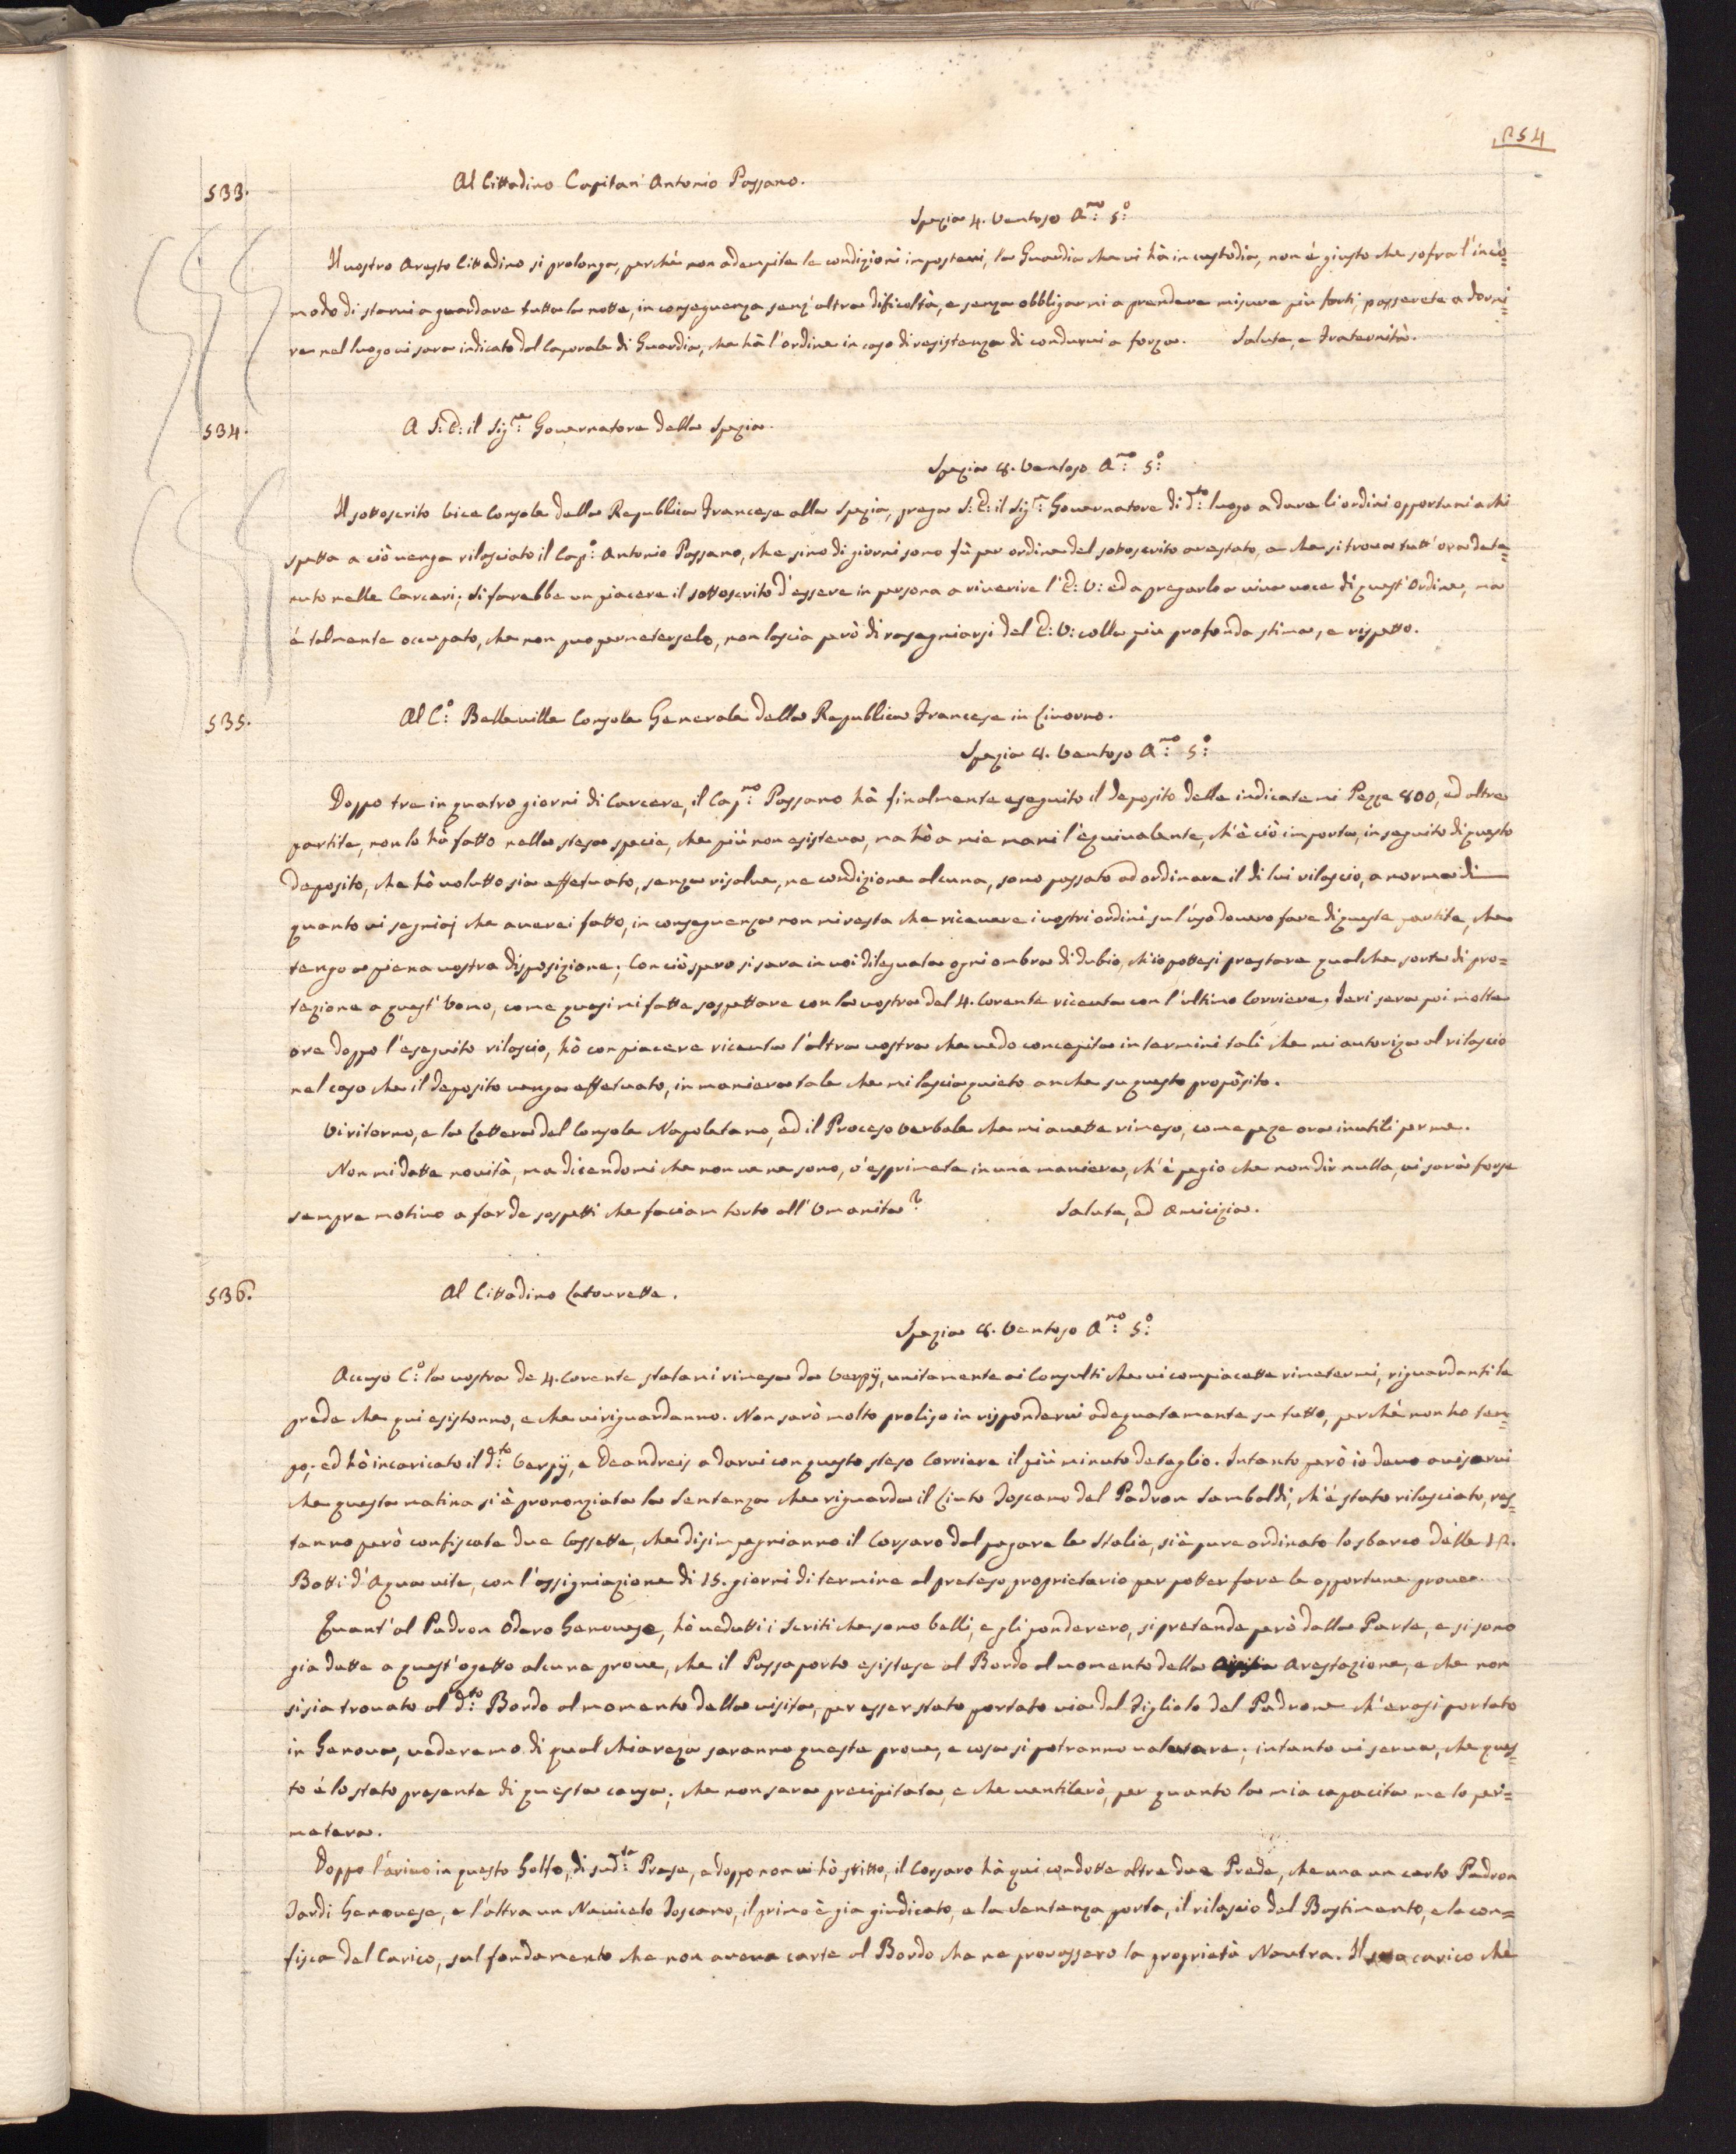 254
533.
Al Cittadino Capitan' Antonio Passano.
Spezia 4. Ventoso A.no 5.o
Il vostro Aresto Cittadino si prolonga, perchè non adempite le condizioni impostevi, la Guardia che vi hà in custodia, non é giusto che sofra l'inco=
modo di starvi a guardare tutta la notte, in conseguenza senz'altra dificoltà, e senza obbligarmi a prendere misure piu forti, passerete a dormi=
re nel luogo vi sara indicato dal Caporale di Guardia, che hà l'ordine in caso di resistenza di condurvi a forza. Salute, e Fraternità.
534.
A S: E: il Sig.re Governatore della Spezia.
Spezia 8. Ventoso A.no 5.o
Il sottoscrito Vice Console della Republica Francese alla Spezia, prega S: E: il Sig.r Governatore di d.to luogo a dare li ordini opportuni a chi
spetta a ciò venga rilasciato il Cap.o Antonio Passano, che sino di giorni sono fù per ordine del sottoscrito arestato, e che si trova tutt'ora dete=
nuto nelle Carceri; Si farebbe un piacere il sottoscrito d'essere in persona a riverire l'E: V: ed a pregarlo a viva voce di quest'Ordine, ma
é talmente occupato, che non puo permeterselo, non lascia però di rasegniarsi del E: V: colla piu profonda stima, e rispetto.
535.
Al C.o Belleville Console Generale della Republica Francese in Livorno.
Spezia 8. Ventoso A.no 5.o
Doppo tre in quatro giorni di Carcere, il Cap.no Passano hà finalmente eseguito il deposito delle indicatemi Pezze 800, ed altre
partite, non lo hà fatto nella stesa specie, che più non esisteva, ma hò a mie mani l'equivalente, ch'è ciò importa, in seguito di questo
deposito, che hò volutto sia effetuato, senza risalve, ne condizione alcuna, sono passato ad ordinare il di lui rilascio, a norma di
quanto vi segniai che averei fatto, in conseguenza non mi resta che ricevere i vostri ordini su l'uso dovero fare di queste partite, che
tengo a piena vostra disposizione; Con ciò spero si sara in voi dileguata ogni ombra di dubio, ch'io pottesi prestare qualche sorta di pro=
tezione a quest'Uomo, come quasi mi fatte sospettare con la vostra del 4. Corente ricevuta con l'ultimo Corriere; Jeri sera poi molte
ore doppo l'eseguito rilascio, hò con piacere ricevuta l'altra vostra che vedo concepita in termini tali che mi autoriza al rilascio
nel caso che il deposito venga effetuato, in maniera tale che mi lascia quieto anche su questo propòsito.
Vi ritorno, e la Lettera del Console Napoletano, ed il Proceso Verbale che mi avette rimeso, come peze ora inutili per me.
Non mi datte novità, ma dicendomi che non ve ne sono, v'esprimete in una maniera, ch'è pegio che non dir nulla, vi sarà forse
sempre motivo a far de sospetti che facian torto all'Umanita? Salute, ed Amicizia.
536.
Al Cittadino Latourette.
Spezia 8. Ventoso A.no 5.o
Accuso C.o la vostra de 4. Corente statami rimesa da Verpÿ, unitamente ai Consulti che vi compiacette rimetermi, riguardanti le
prede che qui esistonno, e che vi riguardanno. Non sarò molto proliso in rispondervi adequatamente su tutto, perchè non ho tem=
po; ed hò incaricato il d.to Verpÿ, e Deandreis a darvi con questo steso Corriere il più minuto detaglio. Intanto però io devo avisarvi
che questa matina si è prononziata la Sentenza che riguarda il Liuto Toscano del Padron Samboldi, ch'é stato rilasciato, res=
tanno però confiscate due Cassette, che disimpegnianno il Corsaro dal pagare le Stalie, si è pure ordinato lo sbarco delle 12.
Botti d'Aqua vite, con l'assigniazione di 15. giorni di termine al preteso proprietario per potter fare le opportune prove.
Quant'al Padron Odero Genovese, hò vedutti i Scriti che sono belli, e gli ponderero, si pretende però dalla Parte, e si sono
gia datte a quest'ogetto alcune prove, che il Passaporto esistese al Bordo al momento della Arestazione, e che non
si sia trovato al d.to Bordo al momento della visita, per esser stato portato via dal Figliolo del Padrone ch'erasi portato
in Genova, vederemo di qual chiareza saranno queste prove, e cosa si potranno valutare; intanto vi serva, che ques=
to é lo stato presente di questa causa; che non sara precipitata, e che ventilerò, per quanto la mia capacita me lo per=
metera.
Doppo l'arivo in questo Golfo, di sud.te Prese, e doppo non vi hò scritto, il Corsaro hà qui condotte altre due Prede, che una un certo Padron
Tardi Genovese, e l'altra un Naviceto Toscano, il primo è gia giudicato, e la Sentenza porta, il rilascio del Bastimento, e la con=
fisca del Carico, sul fondamento che non aveva carte al Bordo che ne provassero la proprietà Neutra. Il carico che